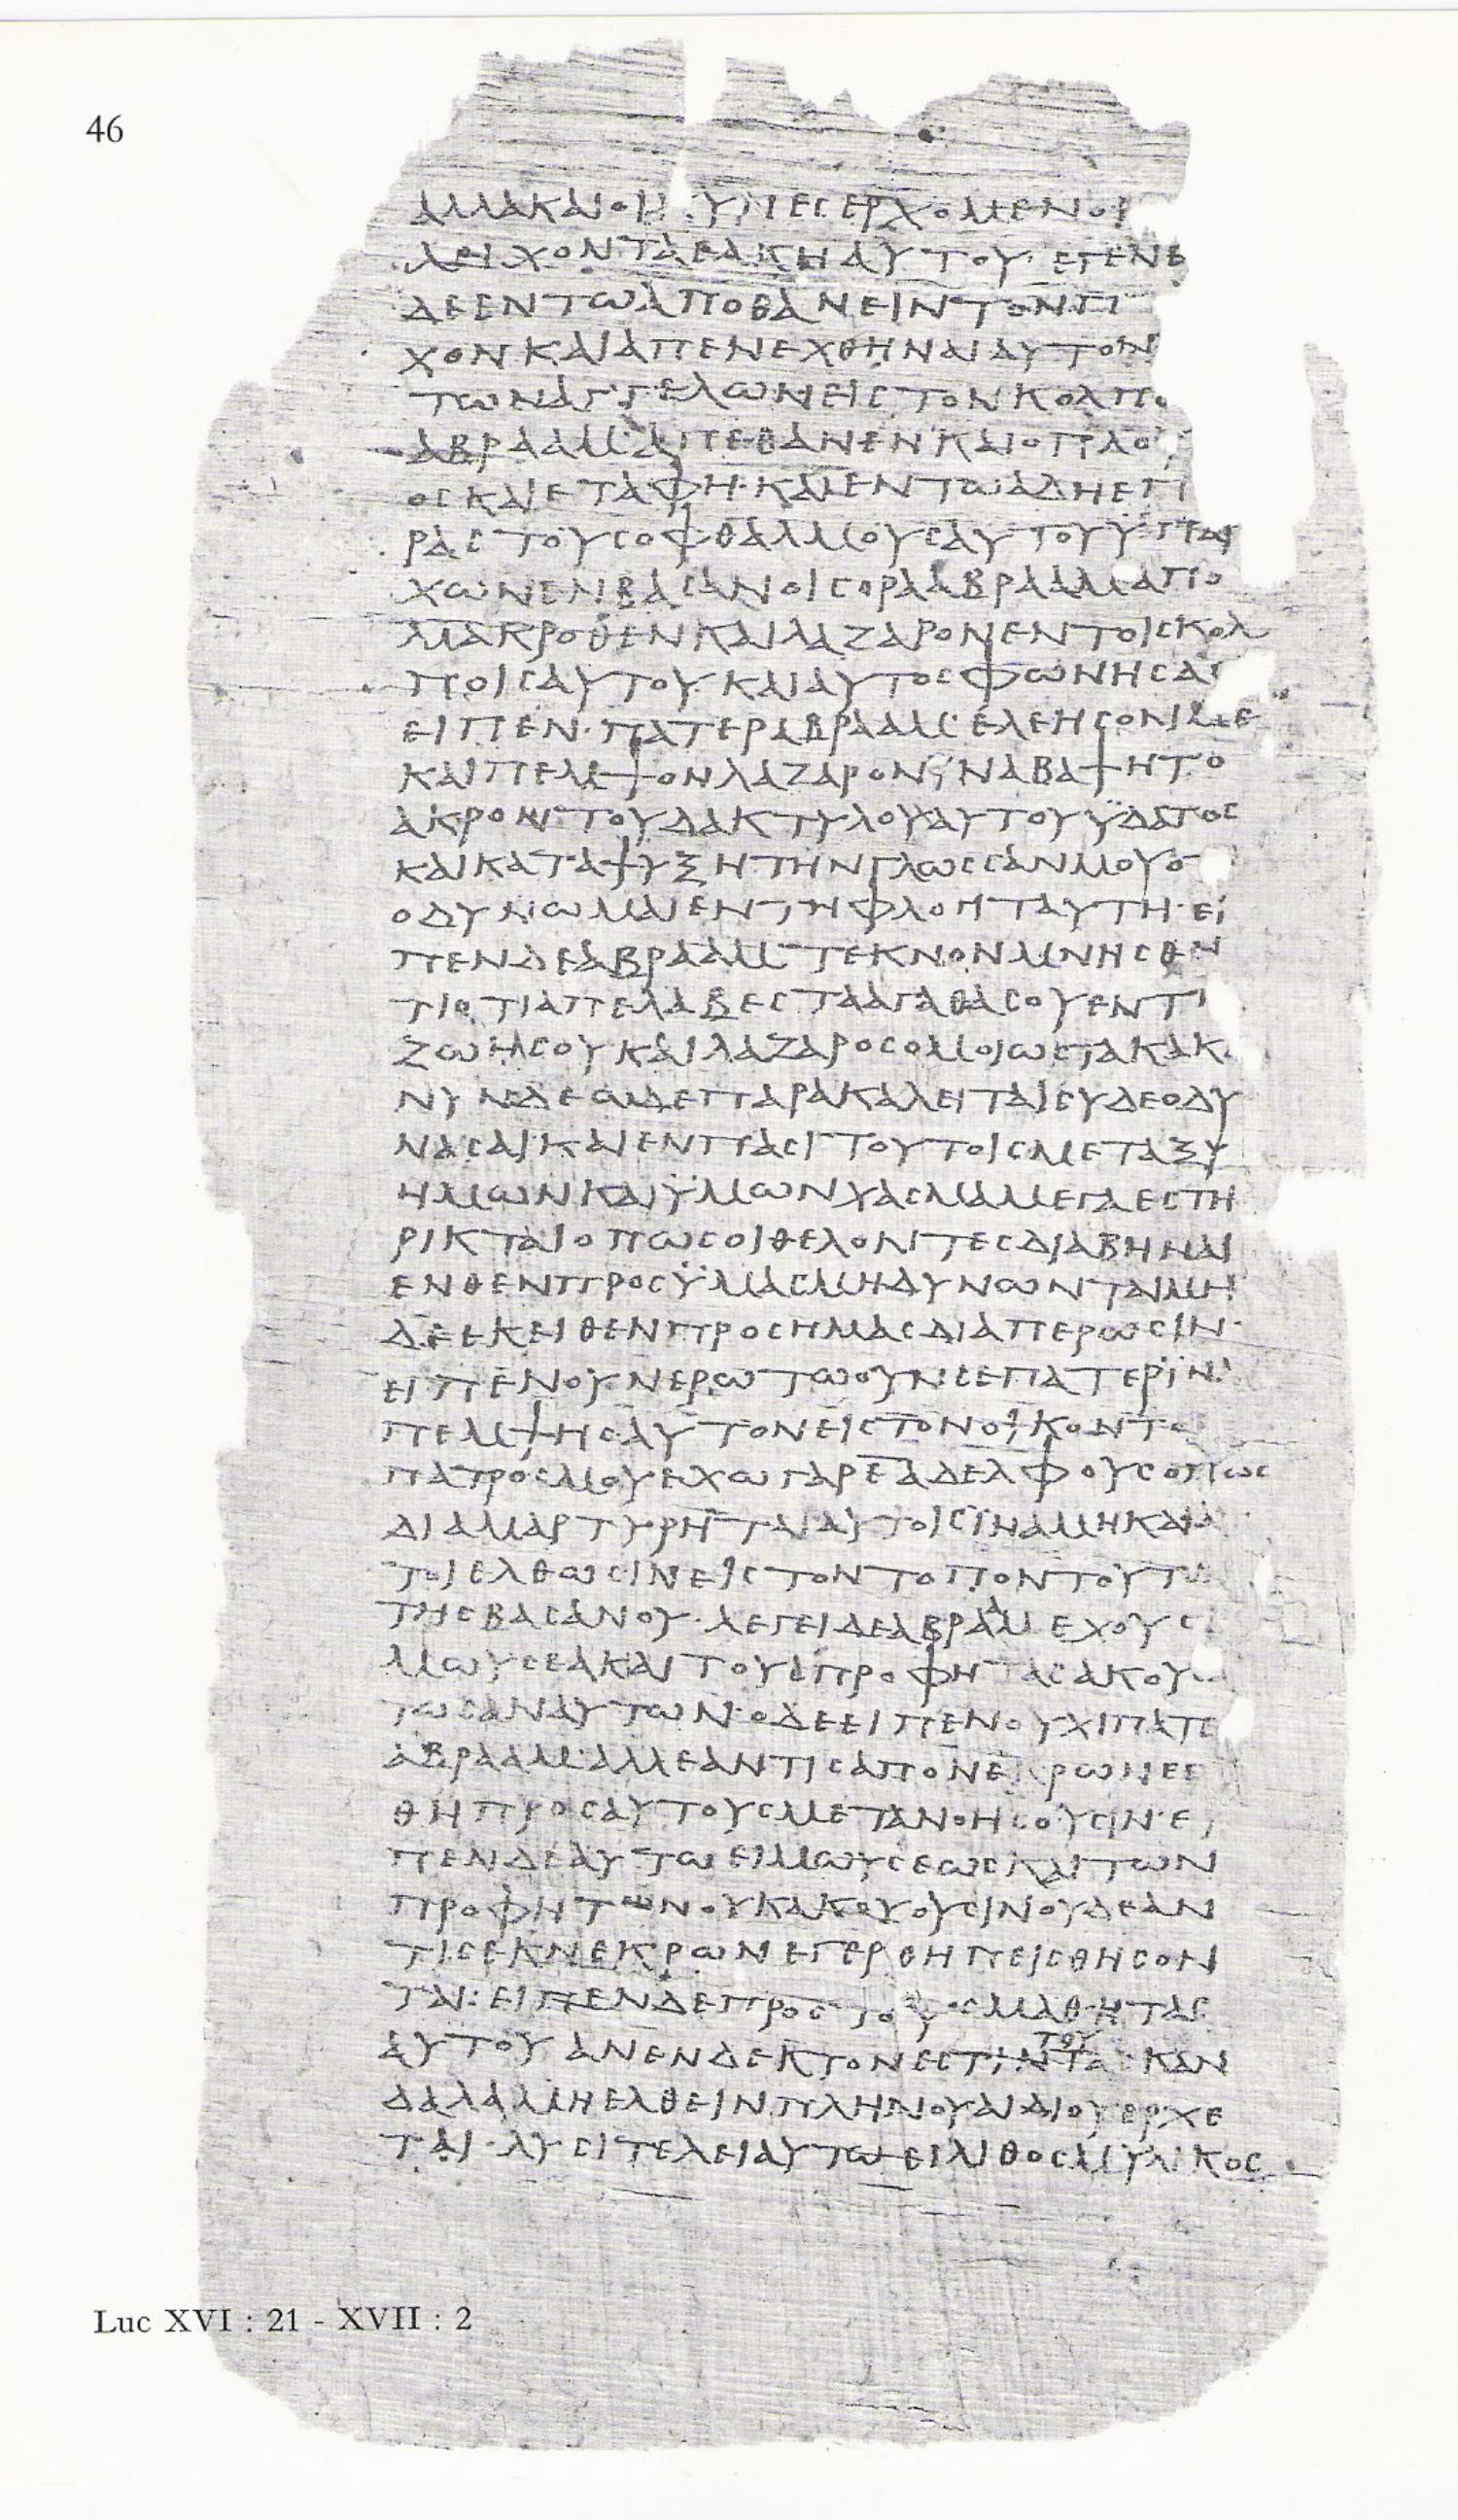 46
ΑΛΛΑΚΑΙΟΙ ΚΥΝΕСΕΡΧΟΜΕΝΟΙ
ΛΕΙΧΟΝΤΑΕΛΚΗΑΥΤΟΥ· ΕΓΕΝΕ
ΔΕΕΝΤΩΑΠΟΘΑΝΕΙΝΤΟΝΠΤ
ΧΟΝΚΑΙΑΠΕΝΕΧΘΗΝΑΙΑΥΤΟΝ
ΤΩΝΑΓΓΕΛΩΝΕΙСΤΟΝΚΟΛΠΟ
ΑΒΡΑΑΜ·ΑΠΕΘΑΝΕΝΚΑΙΟΠΛΟΥ
ΟСΚΑΙΕΤΑΦΗ·ΚΑΙΕΝΤΩΑΔΗΕΠ
ΡΑСΤΟΥСΟΦΘΑΛΜΟΥСΑΥΤΟΥΫΠΑΡ
ΧΩΝΕΝΒΑСΑΝΟΙСΟΡΑΑΒΡΑΑΜΑΠΟ
ΜΑΚΡΟΘΕΝΚΑΙΛΑΖΑΡΟΝΕΝΤΟΙСΚΟΛ
ΠΟΙСΑΥΤΟΥ·ΚΑΙΑΥΤΟСΦΩΝΗСΑС
ΕΙΠΕΝ·ΠΑΤΕΡΑΒΡΑΑΜ·ΕΛΕΗСΟΝΜΕ
ΚΑΙΠΕΜΨΟΝΛΑΖΑΡΟΝΪΝΑΒΑΨΗΤΟ
ΑΚΡΟΝΤΟΥΔΑΚΤΥΛΟΥΑΥΤΟΥΫΔΑΤΟС
ΚΑΙΚΑΤΑΨΥΞΗΤΗΝΓΛΩССΑΝΜΟΥΟ
ΟΔΥΝΩΜΑΙΕΝΤΗΦΛΟΓΙΤΑΥΤΗ·ΕΙ
ΠΕΝΔΕΑΒΡΑΑΜ ΤΕΚΝΟΝΜΝΗСΘΗ
ΤΙΟΤΙΑΠΕΛΑΒΕСΤΑΑΓΑΘΑСΟΥΕΝΤΗ
ΖΩΗСΟΥΚΑΙΛΑΖΑΡΟСΟΜΟΙΩСΤΑΚΑΚΑ
ΝΥΝΔΕΩΔΕΠΑΡΑΚΑΛΕΙΤΑΙСΥΔΕΟΔΥ
ΝΑСΑΙΚΑΙΕΝΠΑСΙΤΟΥΤΟΙСΜΕΤΑΞΥ
ΗΜΩΝΚΑΙΫΜΩΝΧΑСΜΑΜΕΓΑΕСΤΗ
ΡΙΚΤΑΙΟΠΩСΟΙΘΕΛΟΝΤΕСΔΙΑΒΗΝΑΙ
ΕΝΘΕΝΠΡΟСΫΜΑСΜΗΔΥΝΩΝΤΑΙΜΗ
ΔΕΕΚΕΙΘΕΝΠΡΟСΗΜΑСΔΙΑΠΕΡΩСΙΝ·
ΕΙΠΕΝΟΥΝΕΡΩΤΩΟΥΝСΕΠΑΤΕΡΪΝΑ
ΠΕΜΨΗСΑΥΤΟΝΕΙСΤΟΝΟΙΚΟΝΤΟ
ΠΑΤΡΟСΜΟΥΕΧΩΓΑΡΕ̅ΑΔΕΛΦΟΥСΟΠΩС
ΔΙΑΜΑΡΤΥΡΗΤΑΙΑΥΤΟΙСΪΝΑΜΗΚΑΙΑ
ΤΟΙΕΛΘΩСΙΝΕΙСΤΟΝΤΟΠΟΝΤΟΥΤΟ
ΤΗСΒΑСΑΝΟΥ·ΛΕΓΕΙΔΕΑΒΡΑΑΜ ΕΧΟΥСΙ
ΜΩΥСΕΑΚΑΙΤΟΥСΠΡΟΦΗΤΑСΑΚΟΥ
ΤΩСΑΝΑΥΤΩΝ·ΟΔΕΕΙΠΕΝΟΥΧΙΠΑΤΕ
ΑΒΡΑΑΜ·ΑΛΛΕΑΝΤΙСΑΠΟΝΕΚΡΩΝΕΓ
ΘΗΠΡΟСΑΥΤΟΥСΜΕΤΑΝΟΗСΟΥСΙΝ·Ε
ΠΕΝΔΕΑΥΤΩΕΙΜΩΥСΕΩСΚΑΙΤΩΝ
ΠΡΟΦΗΤΩΝΟΥΚΑΚΟΥΟΥСΙΝΟΥΔΕΑΝ
ΤΙСΕΚΝΕΚΡΩΝΕΓΕΡΘΗΠΕΙСΘΗСΟΝ
ΤΑΙ: ΕΙΠΕΝΔΕΠΡΟСΤΟΥСΜΑΘΗΤΑС
ΑΥΤΟΥΑΝΕΝΔΕΚΤΟΝΕСΤΙΝΤΟΥΤΑ СΚΑΝ
ΔΑΛΑΜΗΕΛΘΕΙΝΠΛΗΝΟΥΑΙΔΙΟΥΕΡΧΕ
ΤΑΙ·ΛΥСΙΤΕΛΕΙΑΥΤΩΕΙΛΙΘΟСΜΥΛΙΚΟС
Luc XVI : 21 - XVII : 2